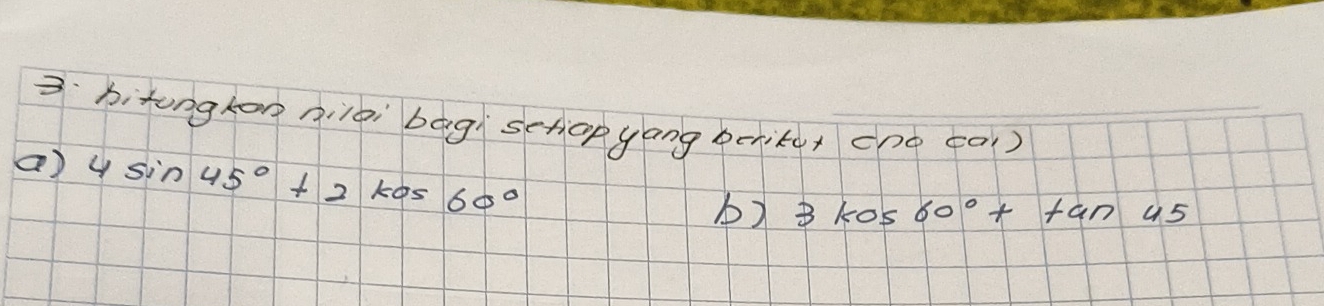 3. hitungkan nilai bagi setiap yang berikut (no cal)
a) 4 sin 45° + 2 kos 60°
b) 3 kos 60° + tan 45